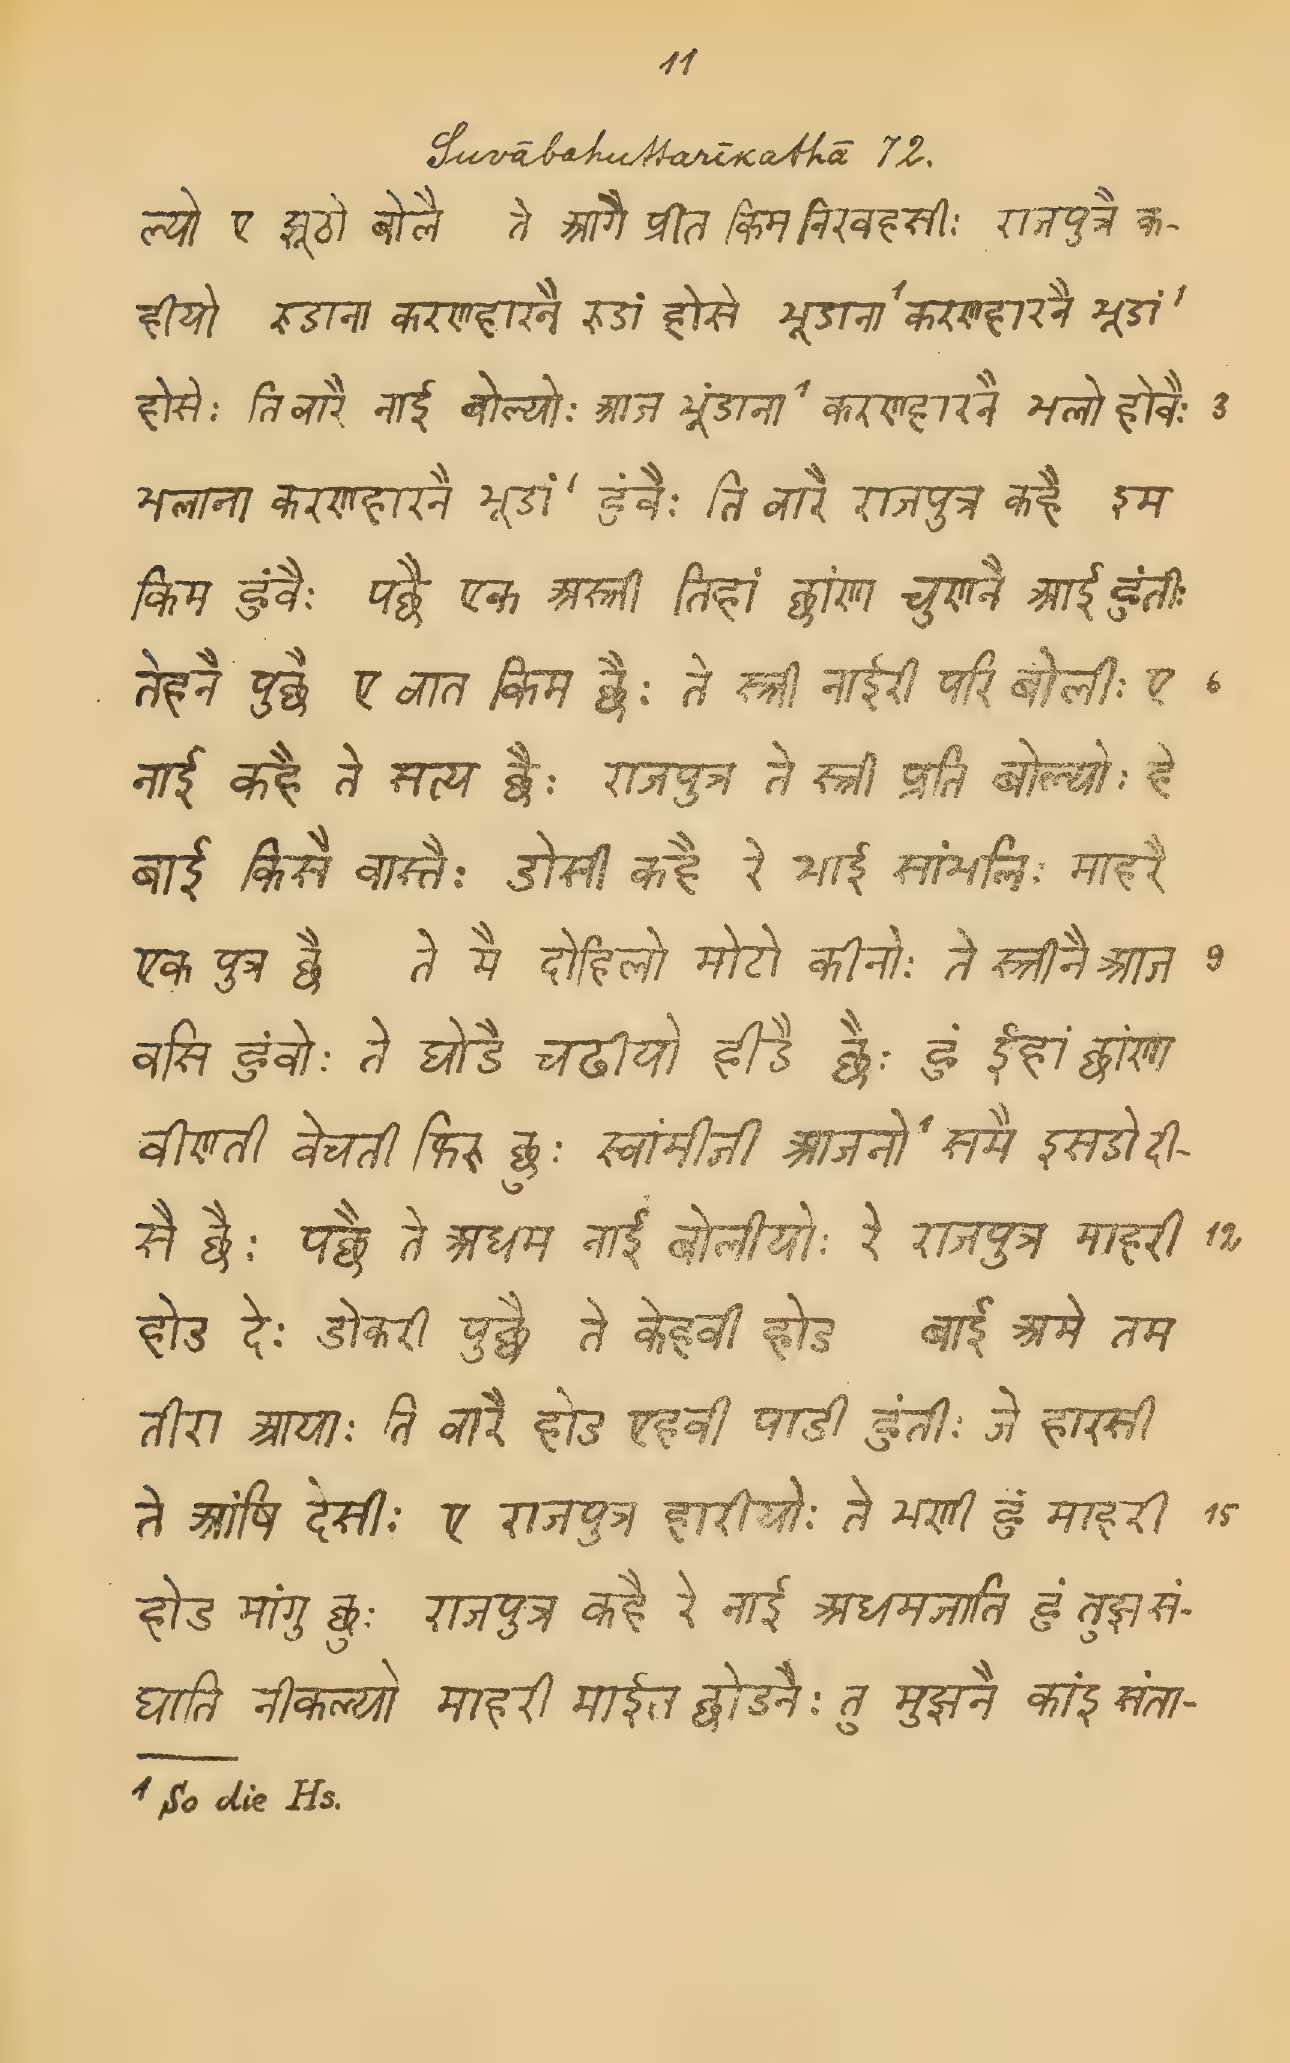 11
Suvābahuttarīkathā 72.
ल्यो ए झूठो बोलै ते आगै प्रीत किम निरवहसी: राजपुत्रै क-
हीयो रुडाना करणहारनै रुडां होसे भूडाना¹ करणहारनै भूडां¹
होसे: ति वारै नाई बोल्यो: आज भूंडाना¹ करणहारनै भलो होवै: 3
भलाना करणहारनै भूडां¹ हुंवै: ति वारै राजपुत्र कहै इम
किम हुंवै: पछै एक अस्त्री तिहां छांण चुणनै आई हुंती:
तेहनै पुछै ए वात किम छै: ते स्त्री नाईरी परि बोली: ए 6
नाई कहै ते सत्य छै: राजपुत्र ते स्त्री प्रति बोल्यो: हे
बाई किसै वास्तै: डोसी कहै रे भाई सांभलि: माहरै
एक पुत्र छै ते मै दोहिलो मोटो कीनो: ते स्त्रीनै आज 9
वसि हुंवो: ते घोडै चढीयो हीडै छै: हुं ईहां छांण
वीणती वेचती फिरु छु: स्वांमीजी आजनो¹ समै इसडो दी-
सै छै: पछै ते अधम नाई बोलीयो: रे राजपुत्र माहरी 12
होड दे: डोकरी पुछै ते केहवी होड बाई अमे तम
तीरा आया: ति वारै होड एहवी पाडी हुंती: जे हारसी
ते आंषि देसी: ए राजपुत्र हारीयो: ते भणी हुं माहरी 15
होड मांगु छु: राजपुत्र कहै रे नाई अधमजाति हुं तुझ सं-
घाति नीकल्यो माहरी माईत छोडनै: तु मुझनै कांइ संता-
¹ So die Hs.